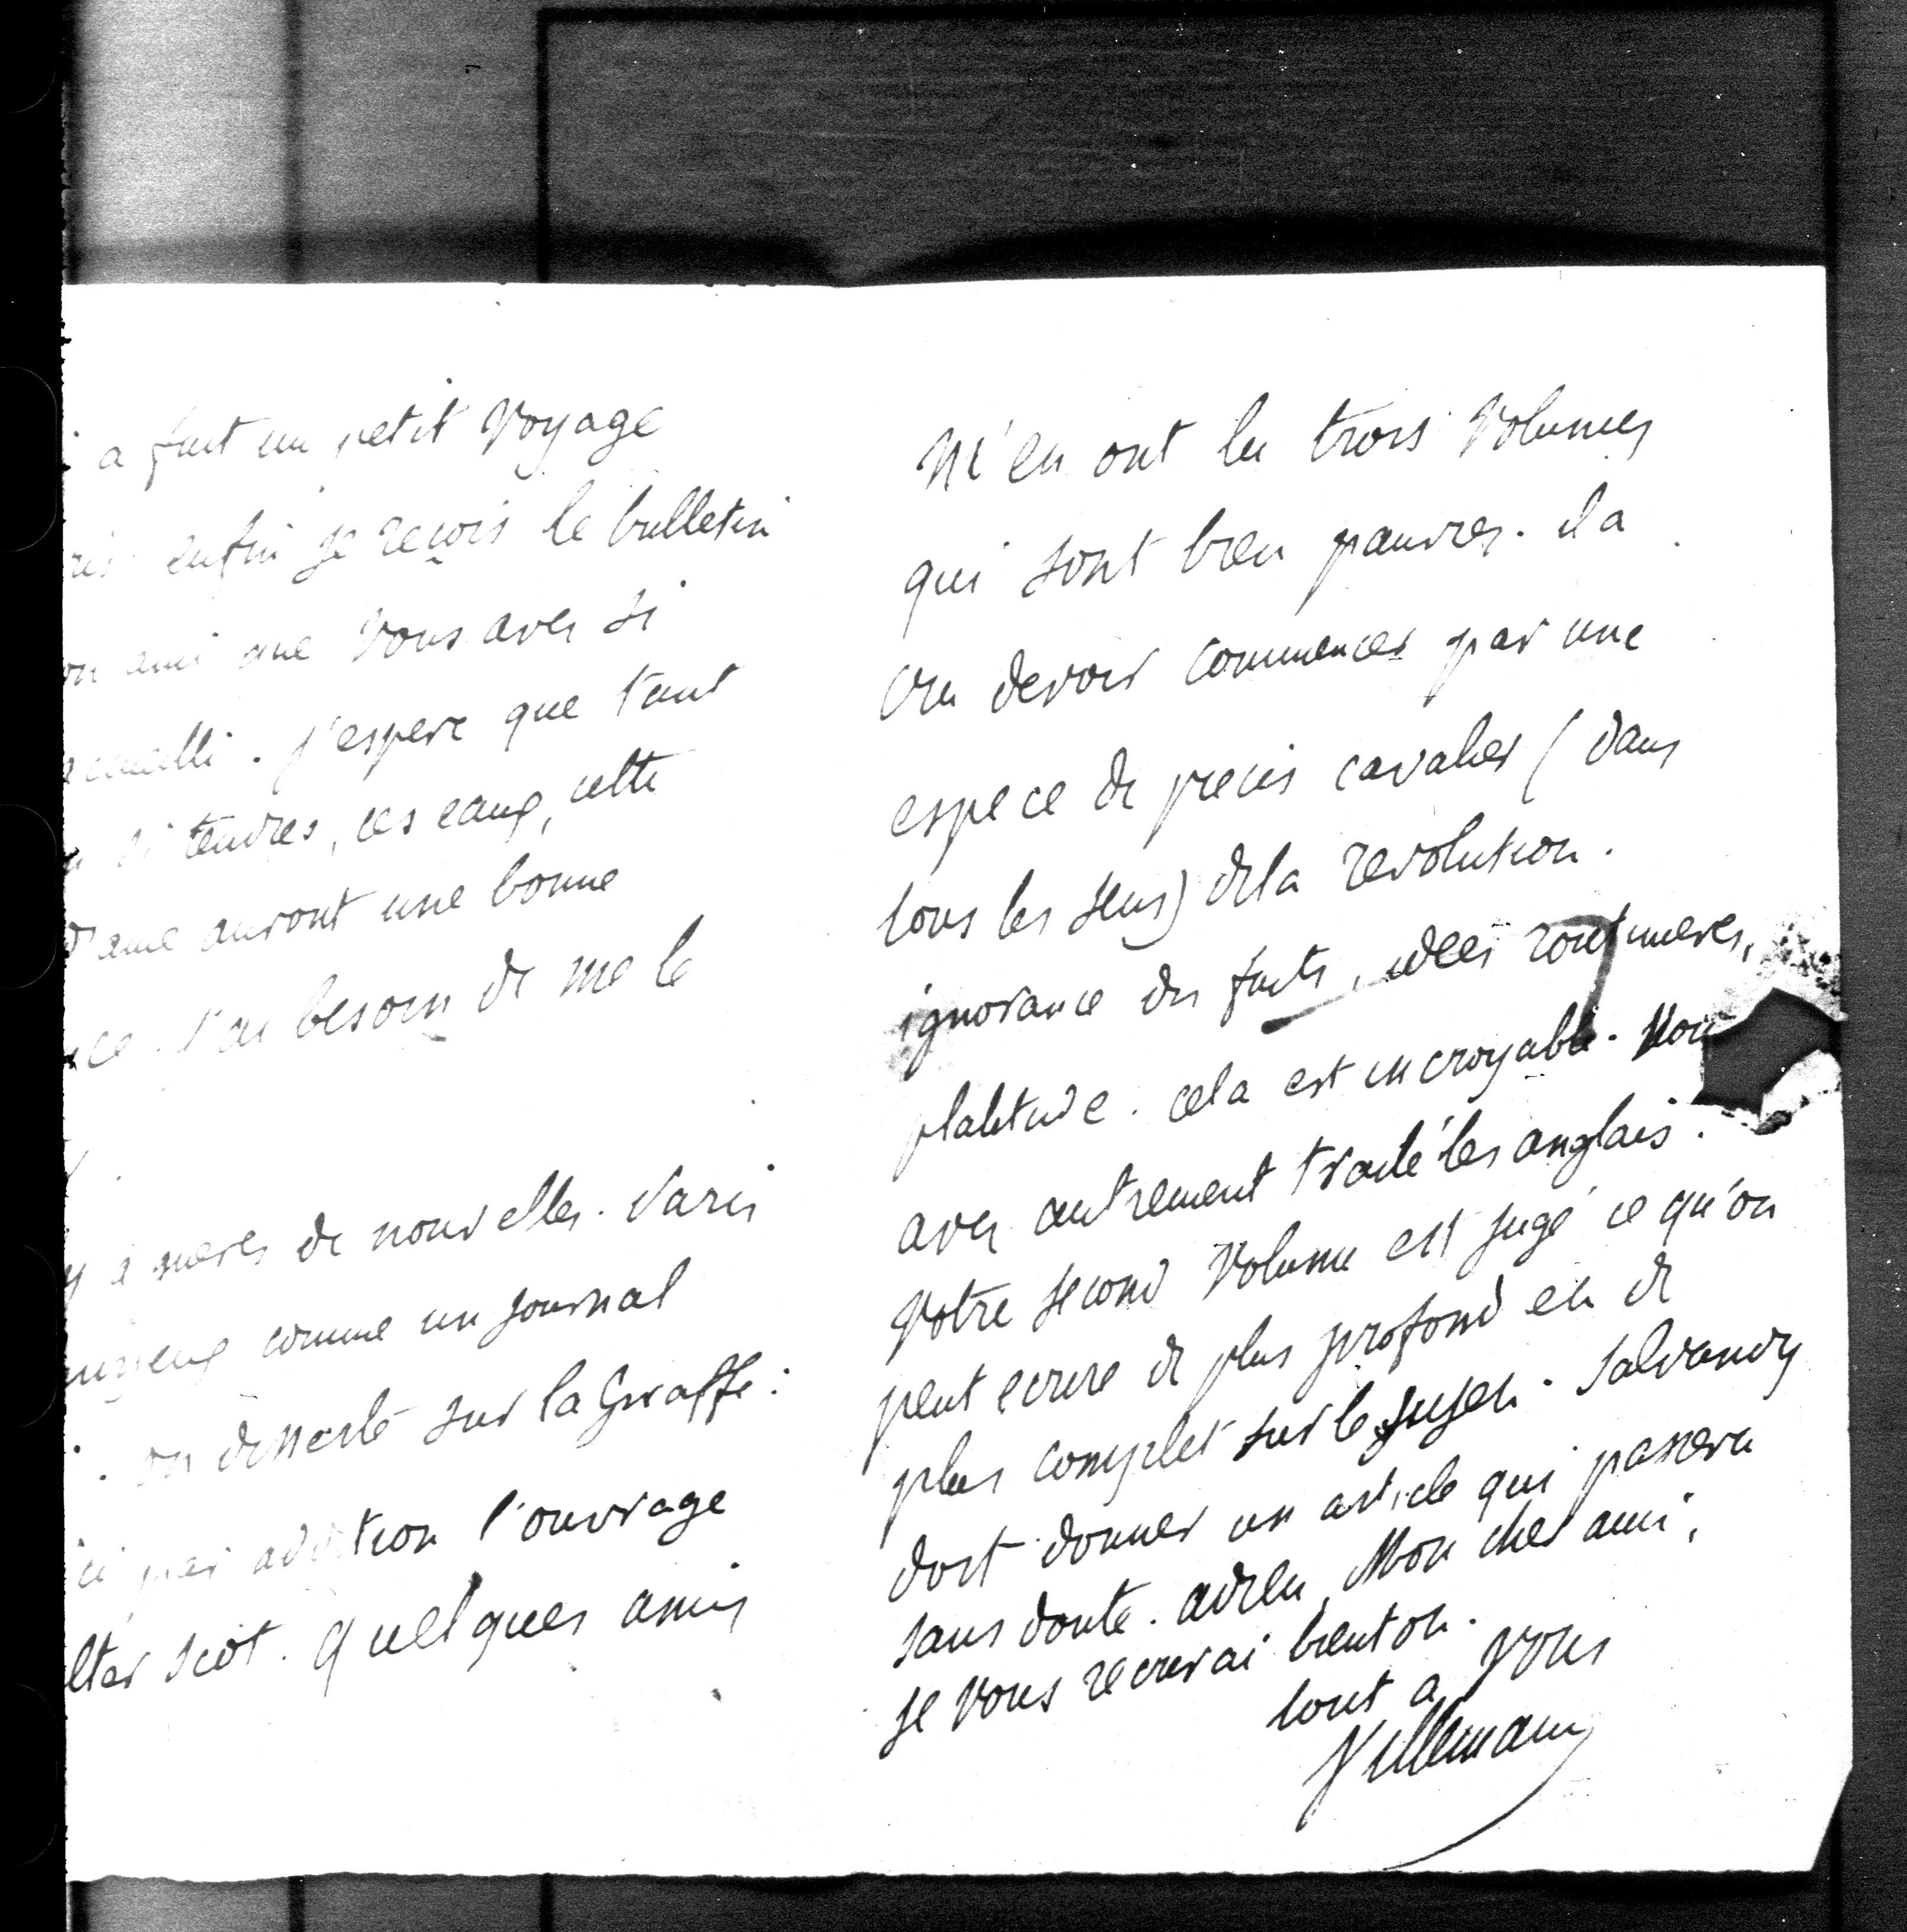 a fait un petit Voyage
enfin je reçois le bulletin
ami que Vous aves si
j'espere que tant
si tendres, ces eaux, cette
d'ame auront une bonne
j'ai besoin de me le
y a gueres de nouvelles. Paris
comme un journal
on disserte sur la Giraffe :
par addition l'ouvrage
lter Scot. Quelques amis
M'en ont lu trois Volumes
qui sont bien pauvres. il a
cru devoir commencer par une
espece de precis cavalier (dans
tous les sens) de la revolution.
ignorance des faits, idées routinieres,
platitude. cela est incroyable. Vous
aves autrement traité les anglais.
Votre second Volume est jugé ce qu'on
peut ecrire de plus profond et de
plus complet sur le sujet. Salvandy
doit donner un article qui passera
sans doute. adieu, Mon cher ami,
je vous recrirai bientot.
tout a Vous
Villemain